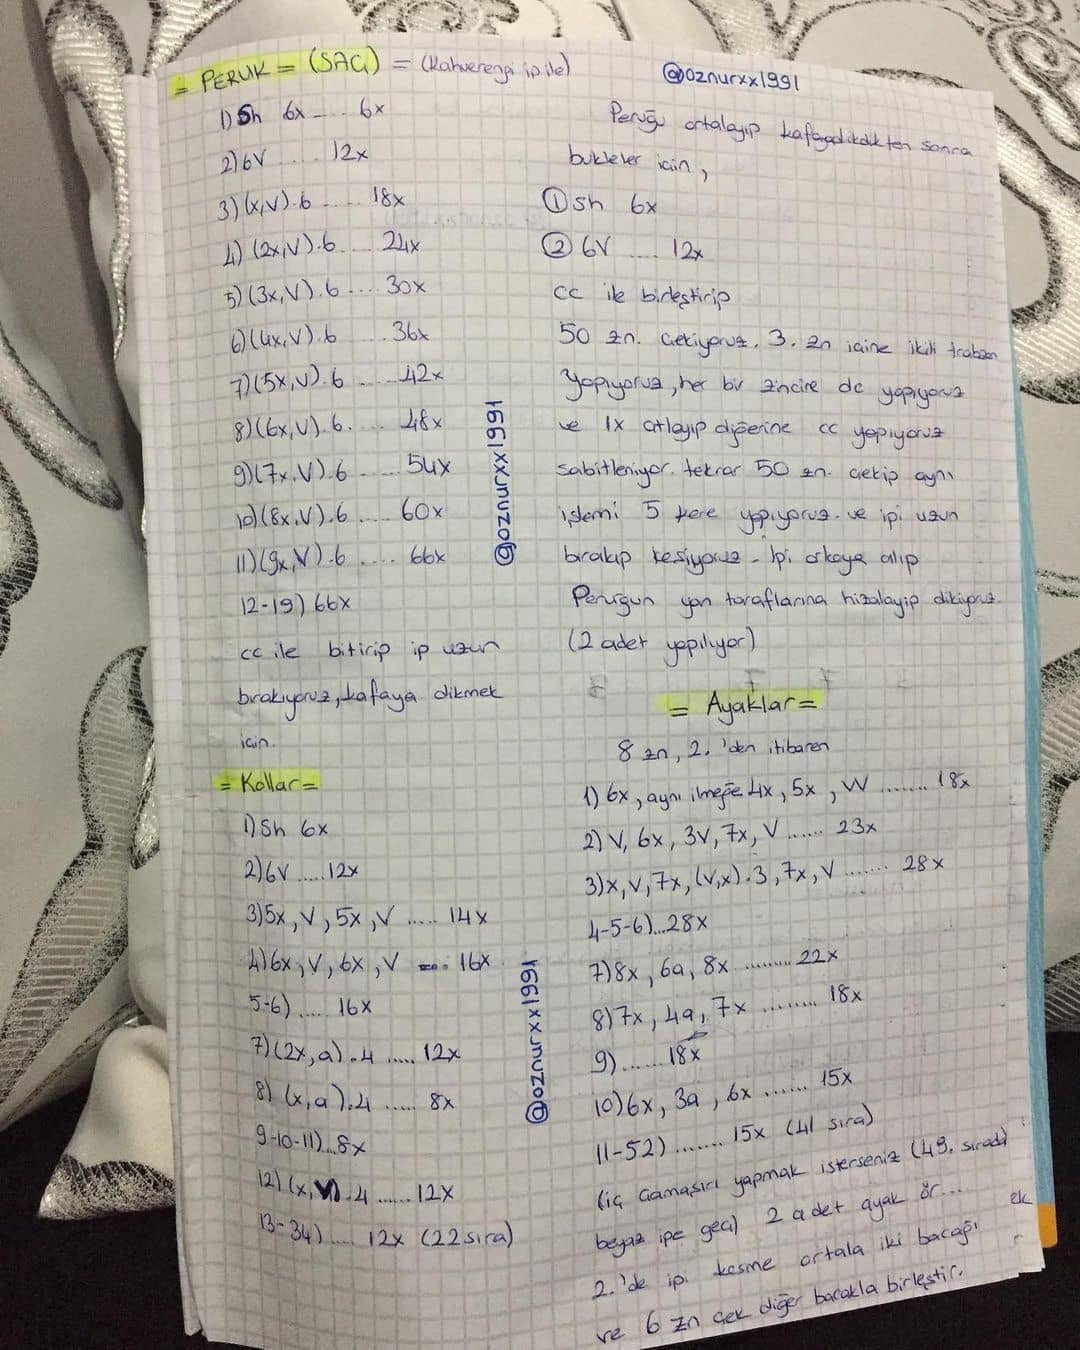 = PERUK = (SAÇ) = (Kahverengi ip ile)
1) Sh 6x ... 6x
2) 6V .... 12x
3) (x,V).6 ..... 18x
4) (2x,V).6 .... 24x
5) (3x,V).6 .... 30x
6) (4x,V).6 ..36x
7) (5x,V).6 .....42x
8) (6x,V).6. ... 48x
9) (7x.V).6 ..... 54x
10) (8x,V).6 .... 60x
11) (9x,V).6 .... 66x
12-19) 66x
cc ile bitirip ip uzun
bırakıyoruz, kafaya dikmek
için.
= Kollar =
1) Sh 6x
2) 6V .....12x
3) 5x, V, 5x, V ..... 14x
4) 6x, V, 6x, V .... 16x
5-6) ..... 16x
7) (2x,a).4 ..... 12x
8) (x,a).4 ..... 8x
9-10-11)...8x
12) (x,V).4 ...... 12x
13-34) ..... 12x (22 sıra)
@oznurxx1991
@oznurxx1991
@oznurxx1991
Peruğu ortalayıp kafaya dikdikten sonra
bukleler için,
① Sh 6x
② 6V ..... 12x
cc ile birleştirip
50 zn. çekiyoruz. 3. zn içine ikili trabzan
yapıyoruz, her bir zincire de yapıyoruz
ve 1x atlayıp diğerine cc yapıyoruz
sabitleniyor. tekrar 50 zn. çekip aynı
işlemi 5 kere yapıyoruz. ve ipi uzun
bırakıp kesiyoruz - İpi arkaya alıp
Peruğun yan taraflarına hizalayıp dikiyoruz.
(2 adet yapılıyor)
= Ayaklar =
8 zn, 2. 'den itibaren
1) 6x, aynı ilmeğe 4x, 5x, W ....... 18x
2) V, 6x, 3V, 7x, V ...... 23x
3) x, V, 7x, (V,x).3, 7x, V ....... 28x
4-5-6)...28x
7) 8x, 6a, 8x ......... 22x
8) 7x, 4a, 7x ......... 18x
9) ....... 18x
10) 6x, 3a, 6x ....... 15x
11-52) ....... 15x (41 sıra)
(iç çamaşırı yapmak isterseniz (49. sırada)
beyaz ipe geç) 2 adet ayak ör... ek
2.'de ipi kesme ortala iki bacağı
ve 6 zn çek diğer bacakla birleştir.